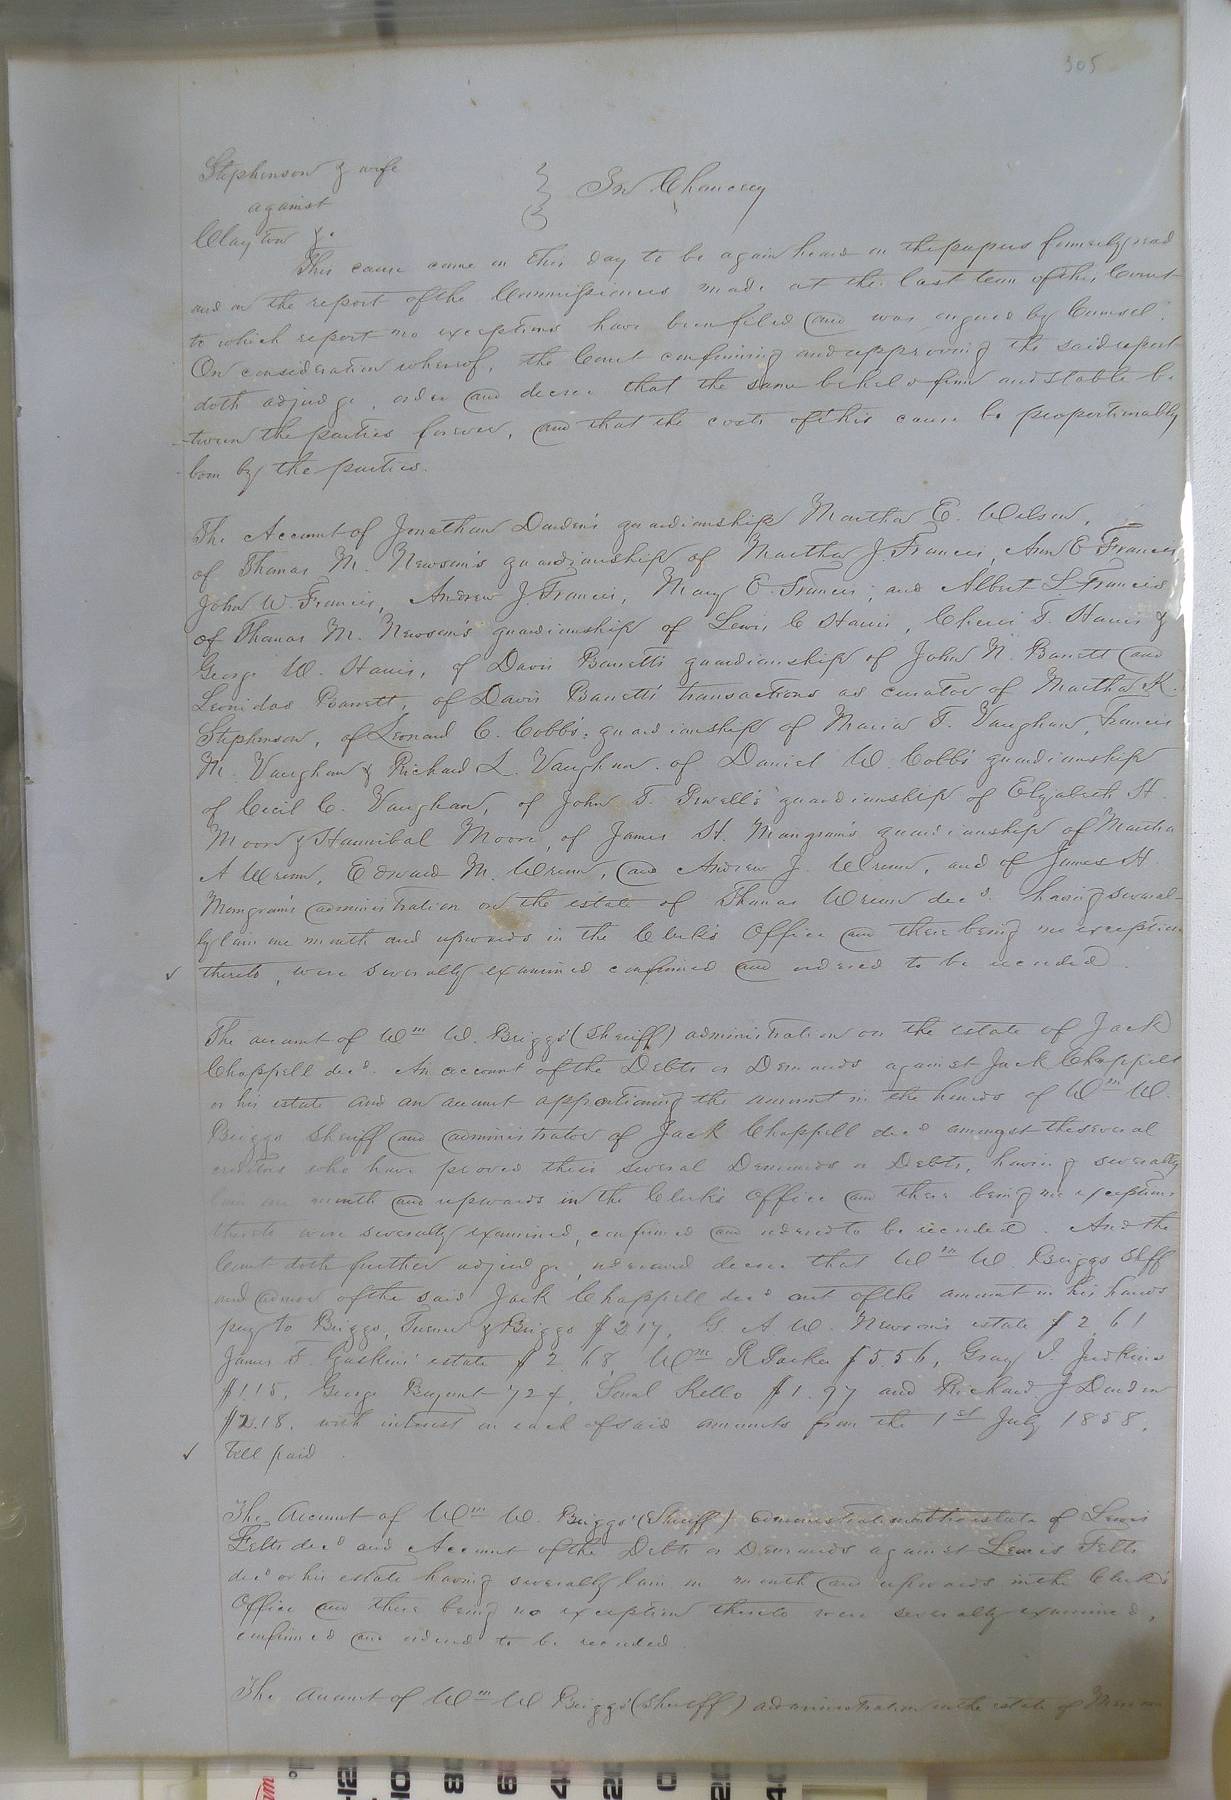 305
Stephenson & wife
against
In Chancery
Clayton &c
This cause came on this day to be again heard on the papers formerly read
and on the report of the Commissioners made at the last term of this Court
to which report no exceptions have been filed and was argued by Counsel.
On consideration whereof, the Court confirming and approving the said report
doth adjudge, order and decree that the same be held firm and stable be
-tween the parties forever, and that the costs of this cause be proportionably
born by the parties.
The Account of Jonathan Darden's guardianship Martha E. Wilson,
of Thomas M. Newsom's guardianship of Martha J. Francis, Ann E Francis
John W. Francis, Andrew J. Francis, Mary E. Francis, and Albert L Francis
of Thomas M. Newsom's guardianship of Lewis C Harris, T. Harris &
George W. Harris, of Davis Barrett's guardianship of John N. Barrett and
Leonidas Barrett, of Davis Barrett's transactions as curator of Martha K.
Stephenson, of Leonard C. Cobb's guardianship of Maria T. Vaughan, Francis
M. Vaughan & Richard L. Vaughan. of Daniel W. Cobb's guardianship
of Cecil C. Vaughan, of John T. guardianship of Elizabeth H.
Moore & Hannibal Moore, of James H. Mangram's guardianship of Martha
A Wrenn, Edward M. Wrenn, and Andrew J. Wrenn, and of James H.
Mangram's administration on the estate of Thomas Wrenn decd. having several-
ly lain one month and upwards in the Clerk's Office and there being no exception
thereto, were severally examined confirmed and ordered to be recorded.
The account of Wm W. Briggs' (Sheriff) administration on the estate of Jack
Chappell decd. An account of the Debts or Demands against Jack Chappell
or his estate and an account apportioning the amount in the hands of Wm W.
Briggs Sheriff and administrator of Jack Chappell decd amongst the several
creditors who have proved their several Demands or Debts, having severally
lain one month and upwards in the Clerk's Office and there being no exceptions
thereto were severally examined, confirmed and ordered to be recorded. And the
Court doth further adjudge, order and decree that Wm W. Briggs Shff
and admor of the said Jack Chappell decd out of the amount in his hands
pay to Briggs, Turner & Briggs $217, G. A W. Newsom's estate $2.61
James F. Gaskins' estate $2.68 Wm R Parker $5.56, Gray J. Judkins
$1.15, George Bryant 72¢, Kello $1.97 and Richard J Darden
$2.18. with interest on each of said amounts from the 1st July 1858,
till paid.
The Account of Wm W. Briggs' (Sheriff) administration on the estate of Lewis
Felts decd and Account of the Debts or Demands against Lewis Felts
decd or his estate having severally lain one month and upwards in the Clerk's
Office and there being no exception thereto were severally examined,
confirmed and ordered to be recorded.
The account of Wm W Briggs' (Sheriff) administration on the estate of
120
100
80
60
40
20
0
20
40